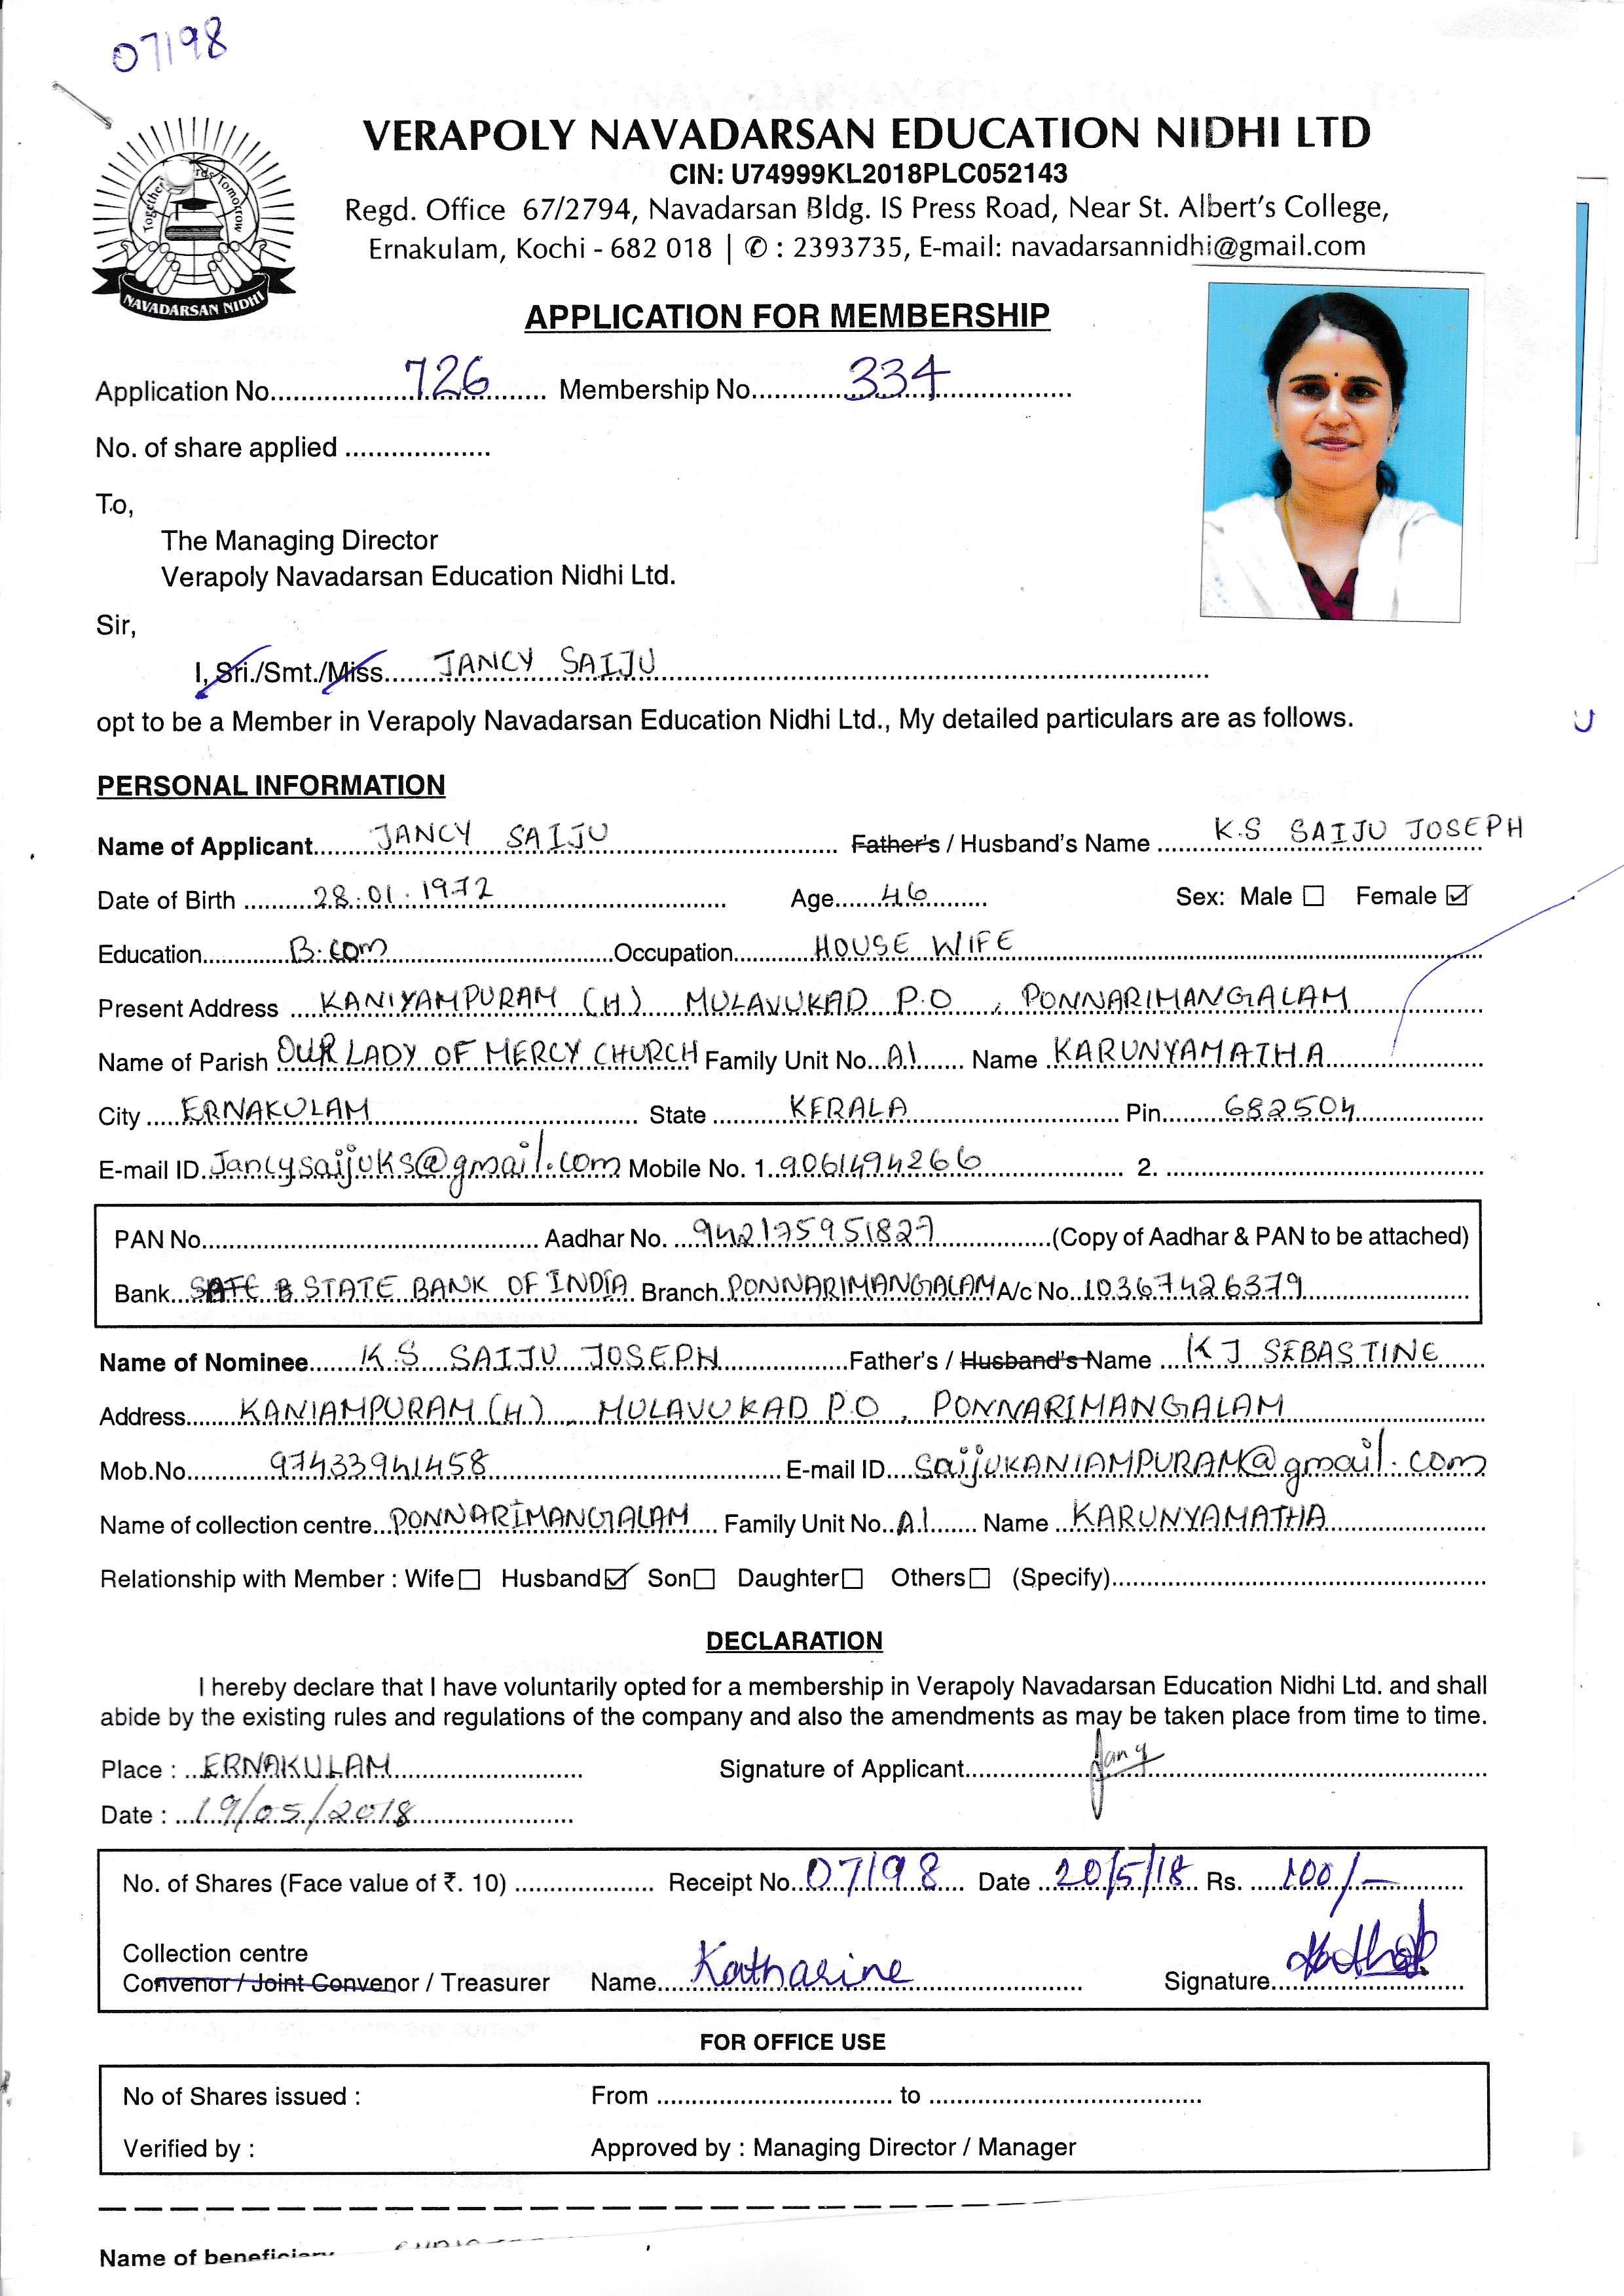 07198
VERAPOLY NAVADARSAN EDUCATION NIDHI LTD
CIN: U74999KL2018PLC052143
Regd. Office 67/2794, Navadarsan Bldg. IS Press Road, Near St. Albert's College,
Ernakulam, Kochi - 682 018 | ✆ : 2393735, E-mail: navadarsannidhi@gmail.com
NAVADARSAN NIDHI
APPLICATION FOR MEMBERSHIP
Application No. 726 Membership No. 334
No. of share applied
To,
The Managing Director
Verapoly Navadarsan Education Nidhi Ltd.
Sir,
I, Sri./Smt./Miss JANCY SAIJU
opt to be a Member in Verapoly Navadarsan Education Nidhi Ltd., My detailed particulars are as follows.
PERSONAL INFORMATION
Name of Applicant JANCY SAIJU Father's / Husband's Name K.S SAIJU JOSEPH
Date of Birth 28.01.1972 Age 46 Sex: Male ☐ Female ☑
Education B.com Occupation HOUSE WIFE
Present Address KANIYAMPURAM (H) MULAVUKAD P.O , PONNARIMANGALAM
Name of Parish OUR LADY OF MERCY CHURCH Family Unit No. A1 Name KARUNYAMATHA
City ERNAKULAM State KERALA Pin 682504
E-mail ID Jancysaijuks@gmail.com Mobile No. 1. 9061494266 2.
PAN No. Aadhar No. 942175951827 (Copy of Aadhar & PAN to be attached)
Bank STATE BANK OF INDIA Branch PONNARIMANGALAM A/c No. 10367426379
Name of Nominee K.S SAIJU JOSEPH Father's / Husband's Name K J SEBASTINE
Address KANIAMPURAM (H) , MULAVUKAD P.O , PONNARIMANGALAM
Mob.No. 97433941458 E-mail ID saijuKANIAMPURAM@gmail.com
Name of collection centre PONNARIMANGALAM Family Unit No. A1 Name KARUNYAMATHA
Relationship with Member : Wife ☐ Husband ☑ Son ☐ Daughter ☐ Others ☐ (Specify)
DECLARATION
I hereby declare that I have voluntarily opted for a membership in Verapoly Navadarsan Education Nidhi Ltd. and shall
abide by the existing rules and regulations of the company and also the amendments as may be taken place from time to time.
Place : ERNAKULAM Signature of Applicant
Date : 19/05/2018
No. of Shares (Face value of ₹. 10) Receipt No. 07198 Date 20/5/18 Rs. 100/-
Collection centre
Convenor / Joint Convenor / Treasurer Name Katharine Signature
FOR OFFICE USE
No of Shares issued : From to
Verified by : Approved by : Managing Director / Manager
Name of beneficiary